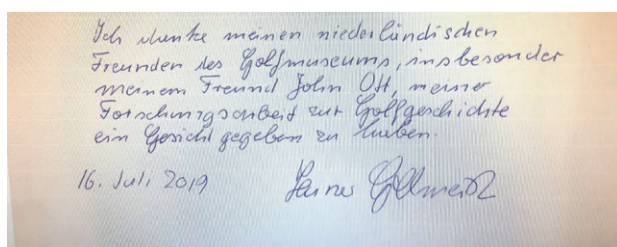 Ich danke meinen niederländischen
Freunden des Golfmuseums, insbesonder
meinem Freund John Ott, meiner
Forschungsarbeit zur Golfgeschichte
ein Gesicht gegeben zu haben.
16. Juli 2019 Heiner Gillmeister